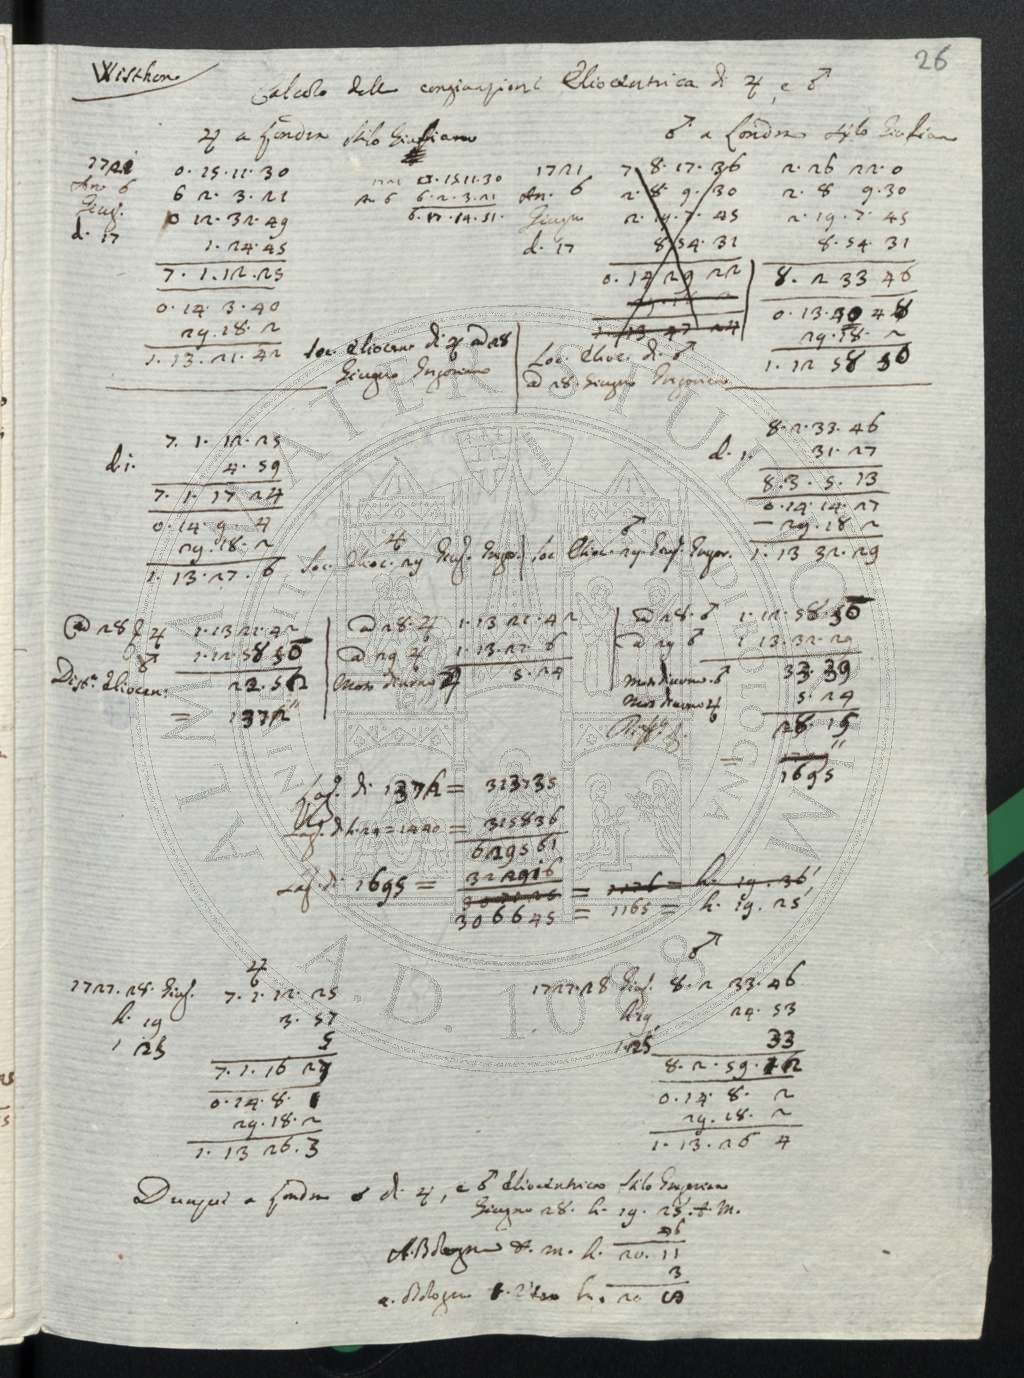 26
Wisthon
Calcolo della congiunzione Eliocentrica di ♃, e ♂
♃ a Londra stilo Giuliano
♂ a Londra stilo Giuliano
1721 0. 15. 11. 30
An. 6 6 2. 3. 21
Giug. 0 12. 32. 49
d. 17 1. 24. 45
7. 1. 12. 25
0. 14. 3. 40
29. 18. 2
1. 13. 21. 42
1721 0. 15. 11. 30
A. 6 6. 2. 3. 21
6. 17. 14. 51.
1721 7. 8. 17. 36
An. 6 2. 8 9. 30
Giugno 2. 19. 7. 45
d. 17 8. 54. 31
0. 14 29 22
1. 13 47 24
2. 26 22. 0
2. 8 9. 30
2. 19. 7. 45
8. 54 31
8. 2 33 46
0. 13. 40 48
29. 18. 2
1. 12 58 50
Loc. Eliocen. di ♃ ad 28
Giugno Gregoriano
Loc. Elioc. di ♂
ad 28. Giugno Gregoriano
7. 1. 12. 25
d. 1. 4. 59
7. 1. 17 24
0. 14. 9. 4
29. 18. 2
1. 13. 27. 6
Loc. Elioc. ♃ 29 Giug. Gregor.
Loc. Elioc. ♂ 29. Giug. Gregor.
8. 2. 33. 46
d. 1. 31. 27
8. 3. 5. 13
0. 14. 14. 27
29. 18 2
1. 13 32. 29
ad 28 ♃ 1. 13 21. 42
♂ 1. 12. 58 50
Dist.a Eliocen: 22. 52
= 1372"
ad 28. ♃ 1. 13 21. 42
ad 29 ♃ 1. 13. 27 6
Moto diurno ♃ 5. 24
ad 28. ♂ 1. 12. 58. 50
ad 29 ♂ 1 13. 32. 29
Moto diurno ♂ 33. 39
Moto diurno ♃ 5. 24
28. 15
= 1695"
Log. di 1372 = 313735
Log. di h. 24 = 1440 = 315836
629561
Log. di 1695 = 322916
306645 = 1165 = h. 19. 25'
1176 = h. 19. 36'
♃
1727. 28. Giug. 7. 1. 12. 25
h. 19 3. 57
25 5
7. 1. 16 27
0. 14. 8.
29. 18. 2
1. 13 26. 3
♂
1727. 28 Giug. 8. 2 33. 46
h. 19 24. 53
25 33
8. 2. 59. 12
0. 14. 8. 2
29. 18. 2
1. 13. 26 4
Dunque a Londra ☌ di ♃, e ♂ Eliocentrica stilo Gregoriano
Giugno 28. h. 19. 25'. t. m.
46
A Bologna t. m. h. 20. 11
3
a. Bologna t. vero h. 20 8